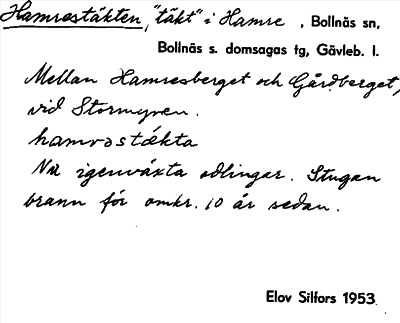 Hamrestäkten, "täkt" i Hamre, Bollnäs sn,
Bollnäs s. domsagas tg, Gävleb. l.
Mellan Hamresberget och Gårdberget,
vid Stormyren.
hamrəstækta
Nu igenväxta odlingar. Stugan
brann för omkr. 10 år sedan.
Elov Silfors 1953